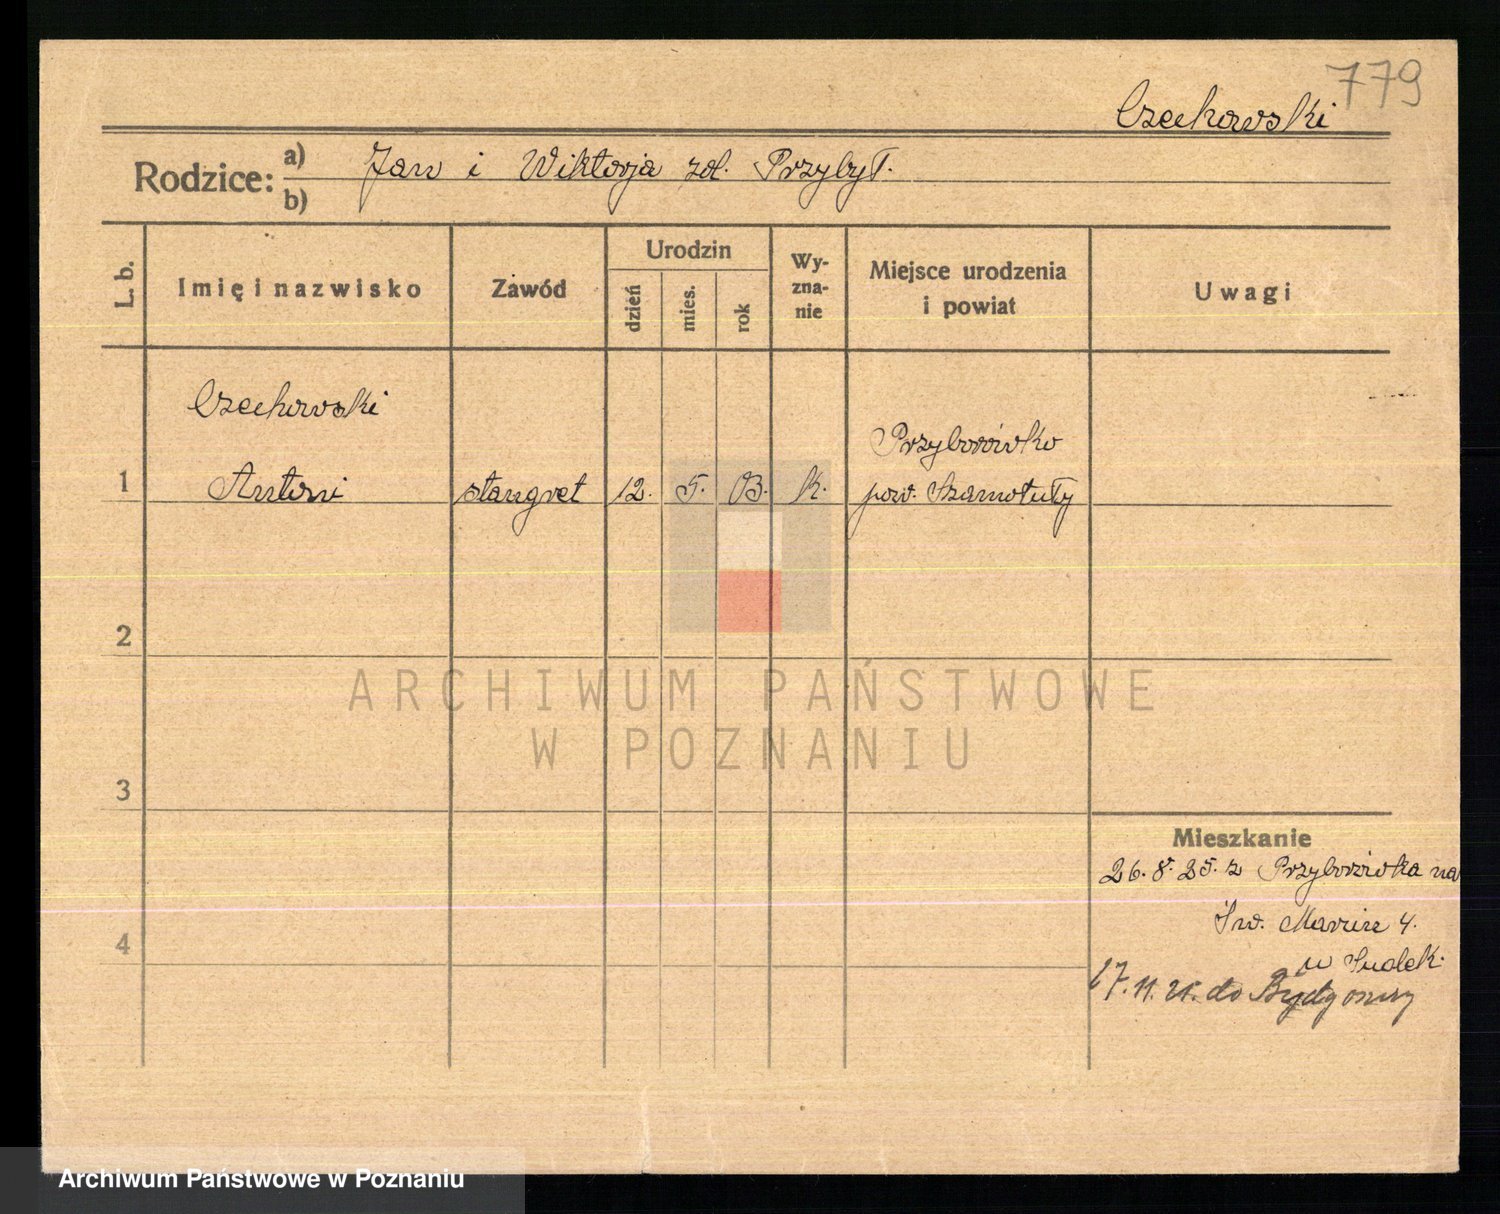 779
Czechowski
Rodzice: a) Jan i Wiktorja zd. Przybył.
b)
L. b.
Imię i nazwisko
Zawód
Urodzin
dzień
mies.
rok
Wy-
zna-
nie
Miejsce urodzenia
i powiat
Uwagi
Czechowski
Przyborówko
1 Antoni stangret 12. 5. 03. k. pow. Szamotuły
2
ARCHIWUM PAŃSTWOWE
W POZNANIU
3
Mieszkanie
26. 8. 25. z Przyborówka na
Św. Marcin 4.
4
17. 11. 25. do Bydgoszczy
Archiwum Państwowe w Poznaniu